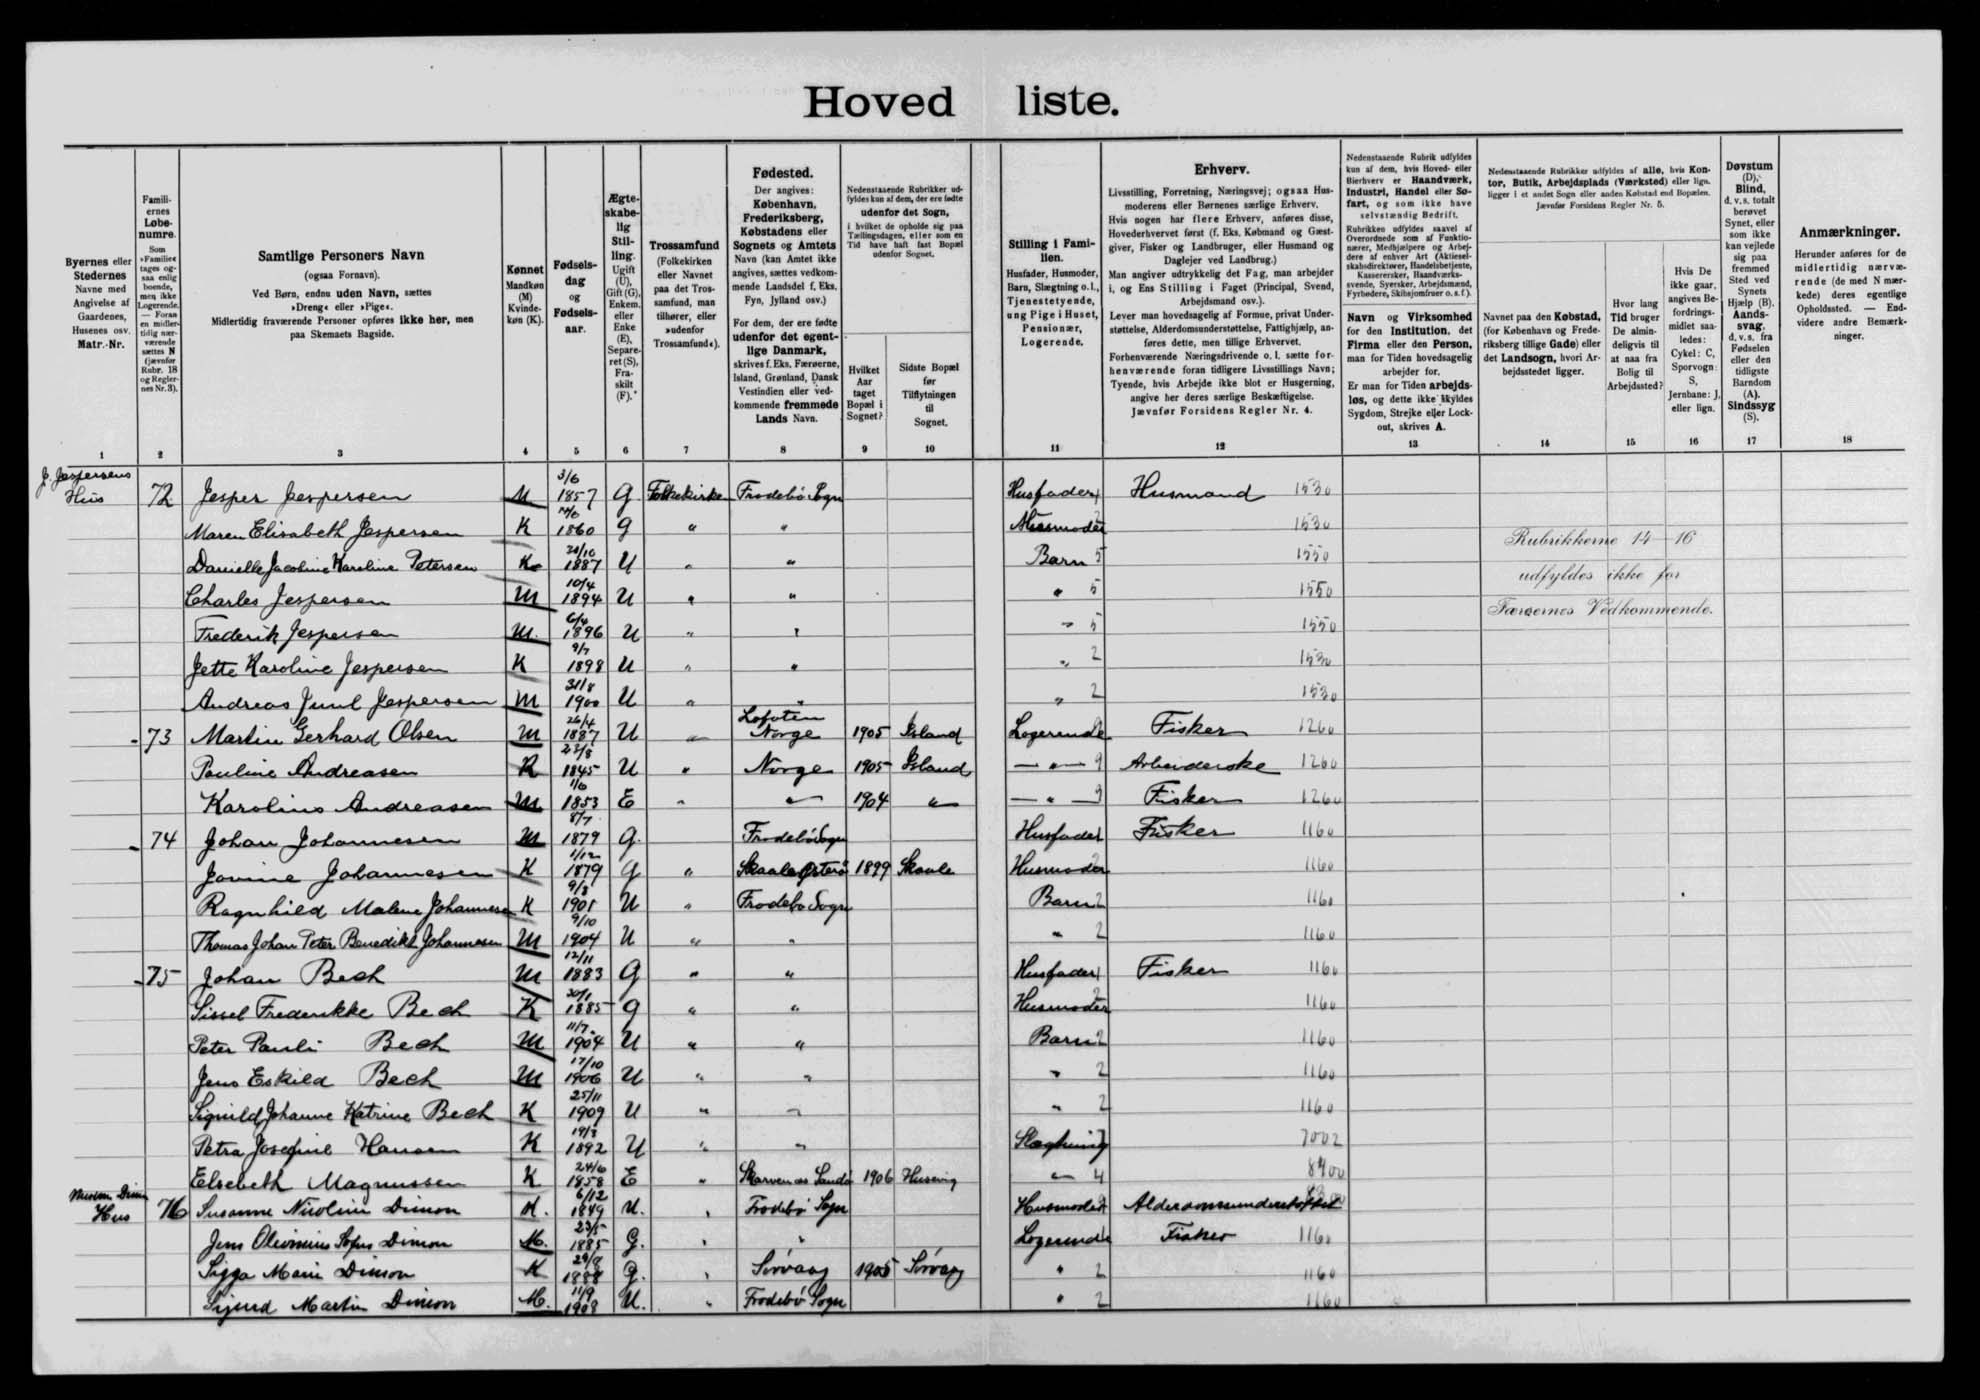 Hoved liste.
Byernes eller Stedernes Navne med Angivelse af Gaardenes, Husenes osv. Matr.-Nr.
Familiernes Løbenumre. Som »Familie« tages ogsaa enlig boende, men ikke Logerende. — Foran en midlertidig nærværende sættes N (jævnfør Rubr. 18 og Reglernes Nr. 3).
Samtlige Personers Navn (ogsaa Fornavn). Ved Børn, endnu uden Navn, sættes »Dreng« eller »Pige«. Midlertidig fraværende Personer opføres ikke her, men paa Skemaets Bagside.
Kønnet Mandkøn (M) Kvindekøn (K).
Fødselsdag og Fødselsaar.
Ægteskabelig Stilling. Ugift (U), Gift (G), Enkem. eller Enke (E), Separeret (S), Fraskilt (F).
Trossamfund (Folkekirken eller Navnet paa det Trossamfund, man tilhører, eller »udenfor Trossamfund«).
Fødested. Der angives: København, Frederiksberg, Købstadens eller Sognets og Amtets Navn (kan Amtet ikke angives, sættes vedkommende Landsdel f. Eks. Fyn, Jylland osv.) For dem, der ere fødte udenfor det egentlige Danmark, skrives f. Eks. Færøerne, Island, Grønland, Dansk Vestindien eller vedkommende fremmede Lands Navn.
Nedenstaaende Rubrikker udfyldes kun af dem, der ere fødte udenfor det Sogn, i hvilket de opholde sig paa Tællingsdagen, eller som en Tid have haft fast Bopæl udenfor Sognet.
Hvilket Aar taget Bopæl i Sognet?
Sidste Bopæl før Tilflytningen til Sognet.
Stilling i Familien. Husfader, Husmoder, Barn, Slægtning o. l., Tjenestetyende, ung Pige i Huset, Pensionær, Logerende.
Erhverv. Livsstilling, Forretning, Næringsvej; ogsaa Husmoderens eller Børnenes særlige Erhverv. Hvis nogen har flere Erhverv, anføres disse, Hovederhvervet først (f. Eks. Købmand og Gæstgiver, Fisker og Landbruger, eller Husmand og Daglejer ved Landbrug.) Man angiver udtrykkelig det Fag, man arbejder i, og Ens Stilling i Faget (Principal, Svend, Arbejdsmand osv.). Lever man hovedsagelig af Formue, privat Understøttelse, Alderdomsunderstøttelse, Fattighjælp, anføres dette, men tillige Erhvervet. Forhenværende Næringsdrivende o. l. sætte forhenværende foran tidligere Livsstillings Navn; Tyende, hvis Arbejde ikke blot er Husgerning, angive her deres særlige Beskæftigelse. Jævnfør Forsidens Regler Nr. 4.
Nedenstaaende Rubrik udfyldes kun af dem, hvis Hoved- eller Bierhverv er Haandværk, Industri, Handel eller Søfart, og som ikke have selvstændig Bedrift. Rubrikken udfyldes saavel af Overordnede som af Funktionærer, Medhjælpere og Arbejdere af enhver Art (Aktieselskabsdirektører, Handelsbetjente, Kasserersker, Haandværkssvende, Syersker, Arbejdsmænd, Fyrbødere, Skibsjomfruer o. s. f.). Navn og Virksomhed for den Institution, det Firma eller den Person, man for Tiden hovedsagelig arbejder for. Er man for Tiden arbejdsløs, og dette ikke skyldes Sygdom, Strejke eller Lockout, skrives A.
Nedenstaaende Rubrikker udfyldes af alle, hvis Kontor, Butik, Arbejdsplads (Værksted) eller lign. ligger i et andet Sogn eller anden Købstad end Bopælen. Jævnfør Forsidens Regler Nr. 5.
Navnet paa den Købstad, (for København og Frederiksberg tillige Gade) eller det Landsogn, hvori Arbejdsstedet ligger.
Hvor lang Tid bruger De almindeligvis til at naa fra Bolig til Arbejdssted?
Hvis De ikke gaar, angives Befordringsmidlet saaledes: Cykel: C, Sporvogn: S, Jernbane: J, eller lign.
Døvstum (D), Blind, d. v. s. totalt berøvet Synet, eller som ikke kan vejlede sig paa fremmed Sted ved Synets Hjælp (B). Aandssvag, d. v. s. fra Fødselen eller den tidligste Barndom (A). Sindssyg (S).
Anmærkninger. Herunder anføres for de midlertidig nærværende (de med N mærkede) deres egentlige Opholdssted. — Endvidere andre Bemærkninger.
1 2 3 4 5 6 7 8 9 10 11 12 13 14 15 16 17 18
J. Jespersens Hus 72 Jesper Jespersen M 3/6 1857 G Folkekirke Frodebö Sogn Husfader 1 Husmand 1530
Maren Elisabeth Jespersen K 1860 G " " Husmoder 2 1530
Danielle Jacobine Karoline Petersen K 1887 U " " Barn 5 1550
Charles Jespersen M 10/4 1894 U " " " 5 1550
Frederik Jespersen M. 6/4 1896 U " " " 5 1550
Jette Karoline Jespersen K 9/7 1898 U " " " 2 1530
Andreas Juul Jespersen M 31/8 1900 U " " " 2 1530
Rubrikkerne 14—16
udfyldes ikke for
Færøernes Vedkommende.
73 Martin Gerhard Olsen M 26/4 1887 U " Lofoten Norge 1905 Island Logerende 9 Fisker 1260
Pauline Andreasen K 1845 U " Norge 1905 Island — " — 9 Arbeiderske 1260
Karolius Andreasen M 1/6 1853 E " " 1904 " — " — 9 Fisker 1260
74 Johan Johannesen M 8/7 1879 G. Frodebö Sogn Husfader 1 Fisker 1160
Jovine Johannesen K 1/12 1879 G " Skaale Østerö 1899 Skaale Husmoder 2 1160
Ragnhild Malene Johannesen K 9/8 1901 U " Frodebö Sogn Barn 2 1160
Thomas Johan Peter Benedikt Johannesen M 9/10 1904 U " " " 2 1160
75 Johan Bech M 12/11 1883 G " " Husfader 1 Fisker 1160
Sissel Frederikke Bech K 30/1 1885 G " " Husmoder 2 1160
Peter Pauli Bech M 11/7 1904 U " " Barn 2 1160
Jens Eskild Bech M 17/10 1906 U " " " 2 1160
Signild Johanne Katrine Bech K 25/11 1909 U " " " 2 1160
Petra Josefine Hansen K 19/3 1892 U " " Slægtning 7 7002
Elsebeth Magnussen K 24/6 1858 E " Skarvenæs Sandö 1906 Husevig " 4 8900
Hus 76 Susanne Nicoline Dimon K. 6/12 1849 U. " Frodebö Sogn Husmoder Alderdomsunderstøttet
Jens Olivinius Sofus Dimon M. 23/5 1885 G. " " Logerende Fisker 1160
Sigga Marie Dimon K 29/8 1888 G. " Sörvaag 1905 Sörvaag " 2 1160
Sjurd Martin Dimon M. 11/9 1908 U. " Frodebö Sogn " 2 1160